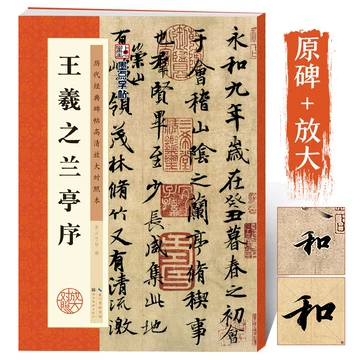 原碑+放大
永和九年歲在癸丑暮春之初會
于會稽山陰之蘭亭脩稧事
也群賢畢至少長咸集此地
有峻領茂林脩竹又有清流激
墨点字帖
历代经典碑帖高清放大对照本
王羲之兰亭序
和
和